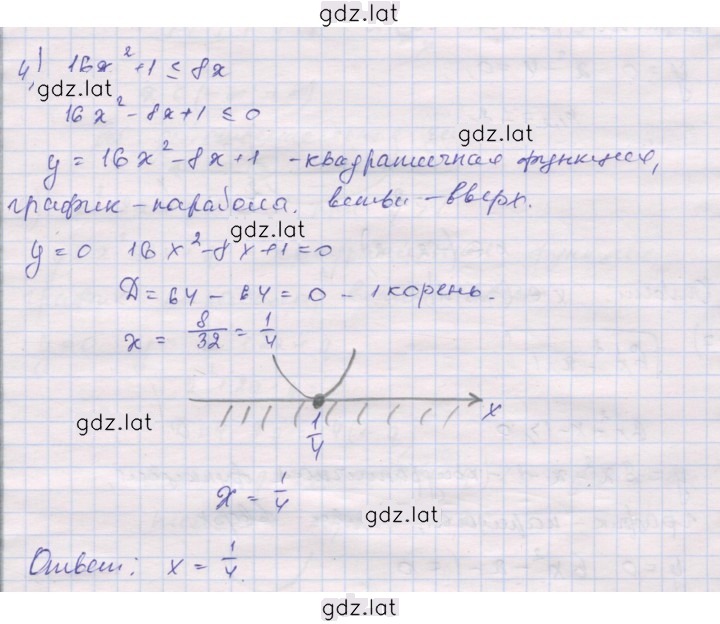 gdz.lat
4) 16x² + 1 ≤ 8x
gdz.lat
16x² - 8x + 1 ≤ 0
gdz.lat
y = 16x² - 8x + 1 - квадратичная функция,
график - парабола. ветви - вверх.
gdz.lat
y = 0 16x² - 8x + 1 = 0
D = 64 - 64 = 0 - 1 корень.
x = 8/32 = 1/4
gdz.lat
x
1/4
x = 1/4
gdz.lat
Ответ: x = 1/4.
gdz.lat